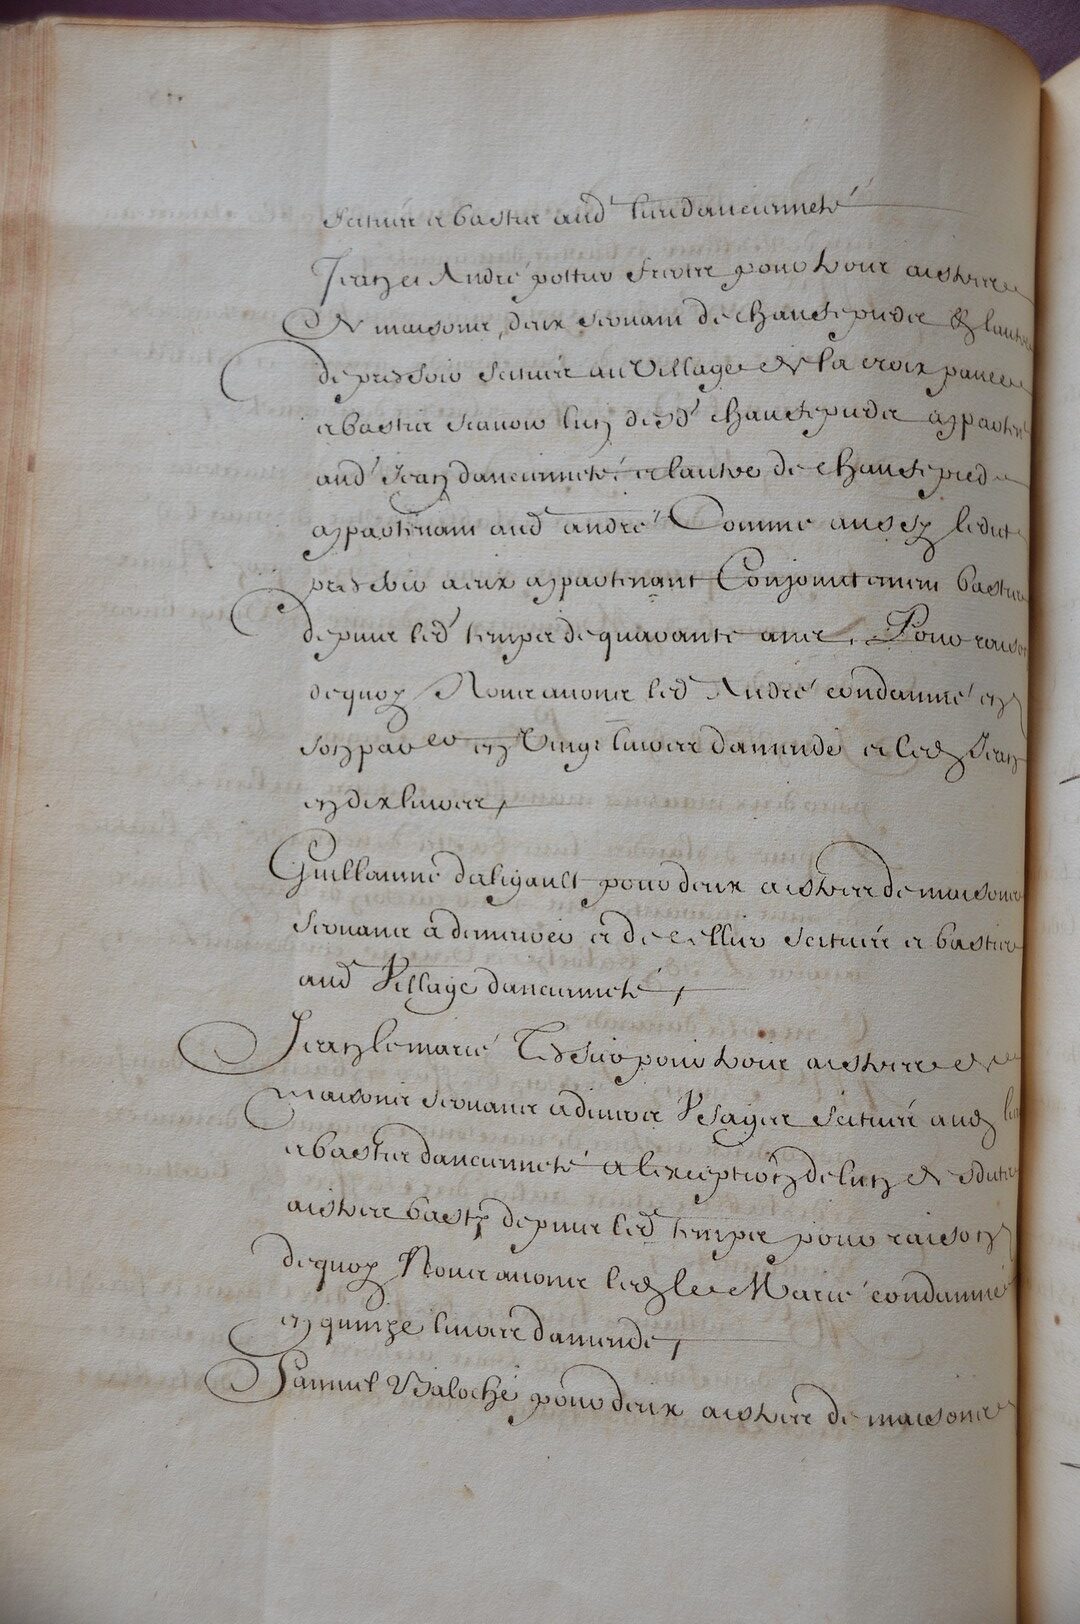 scituée et bastie aud lieu dancienneté
Jean et André pottier freres pour trois aistres
de maisons, deux servant de chaufepieds et lautre
de pressoir scituée au Village de la croix
et bastie scavoir lun desd chaufepieds apparten
aud Jean dancienneté et lautre de chaufepied
appartenant aud andré Comme aussy ledit
pressoir a eux appartenant Conjoinctement bastis
depuis led temps de quarante ans, Pour raison
dequoy Nous avons led André condamné en
son par er en Vingt livres damende et led Jean
en dix livres,
Guillaume daligault pour deux aistres de maisons
servans à demeurer et de cellier scituée et bastie
aud Village dancienneté,
Jean le marié Tessier pour trois aistres de
maisons servans a divers Usages scituée aud lieu
et bastis dancienneté a lexception de lun desdits
aistres basty depuis led temps pour raison
dequoy Nous avons led le Marié condamné
en quinze livres damende,
Samuel Baloche pour deux aistres de maisons